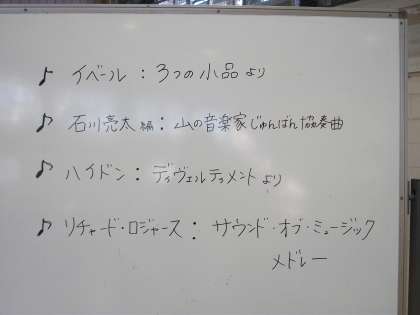 ♪ イベール：3つの小品より
♪ 石川亮太 編：山の音楽家じゅんばん協奏曲
♪ ハイドン：ディヴェルティメントより
♪ リチャード・ロジャース：サウンド・オブ・ミュージック
メドレー